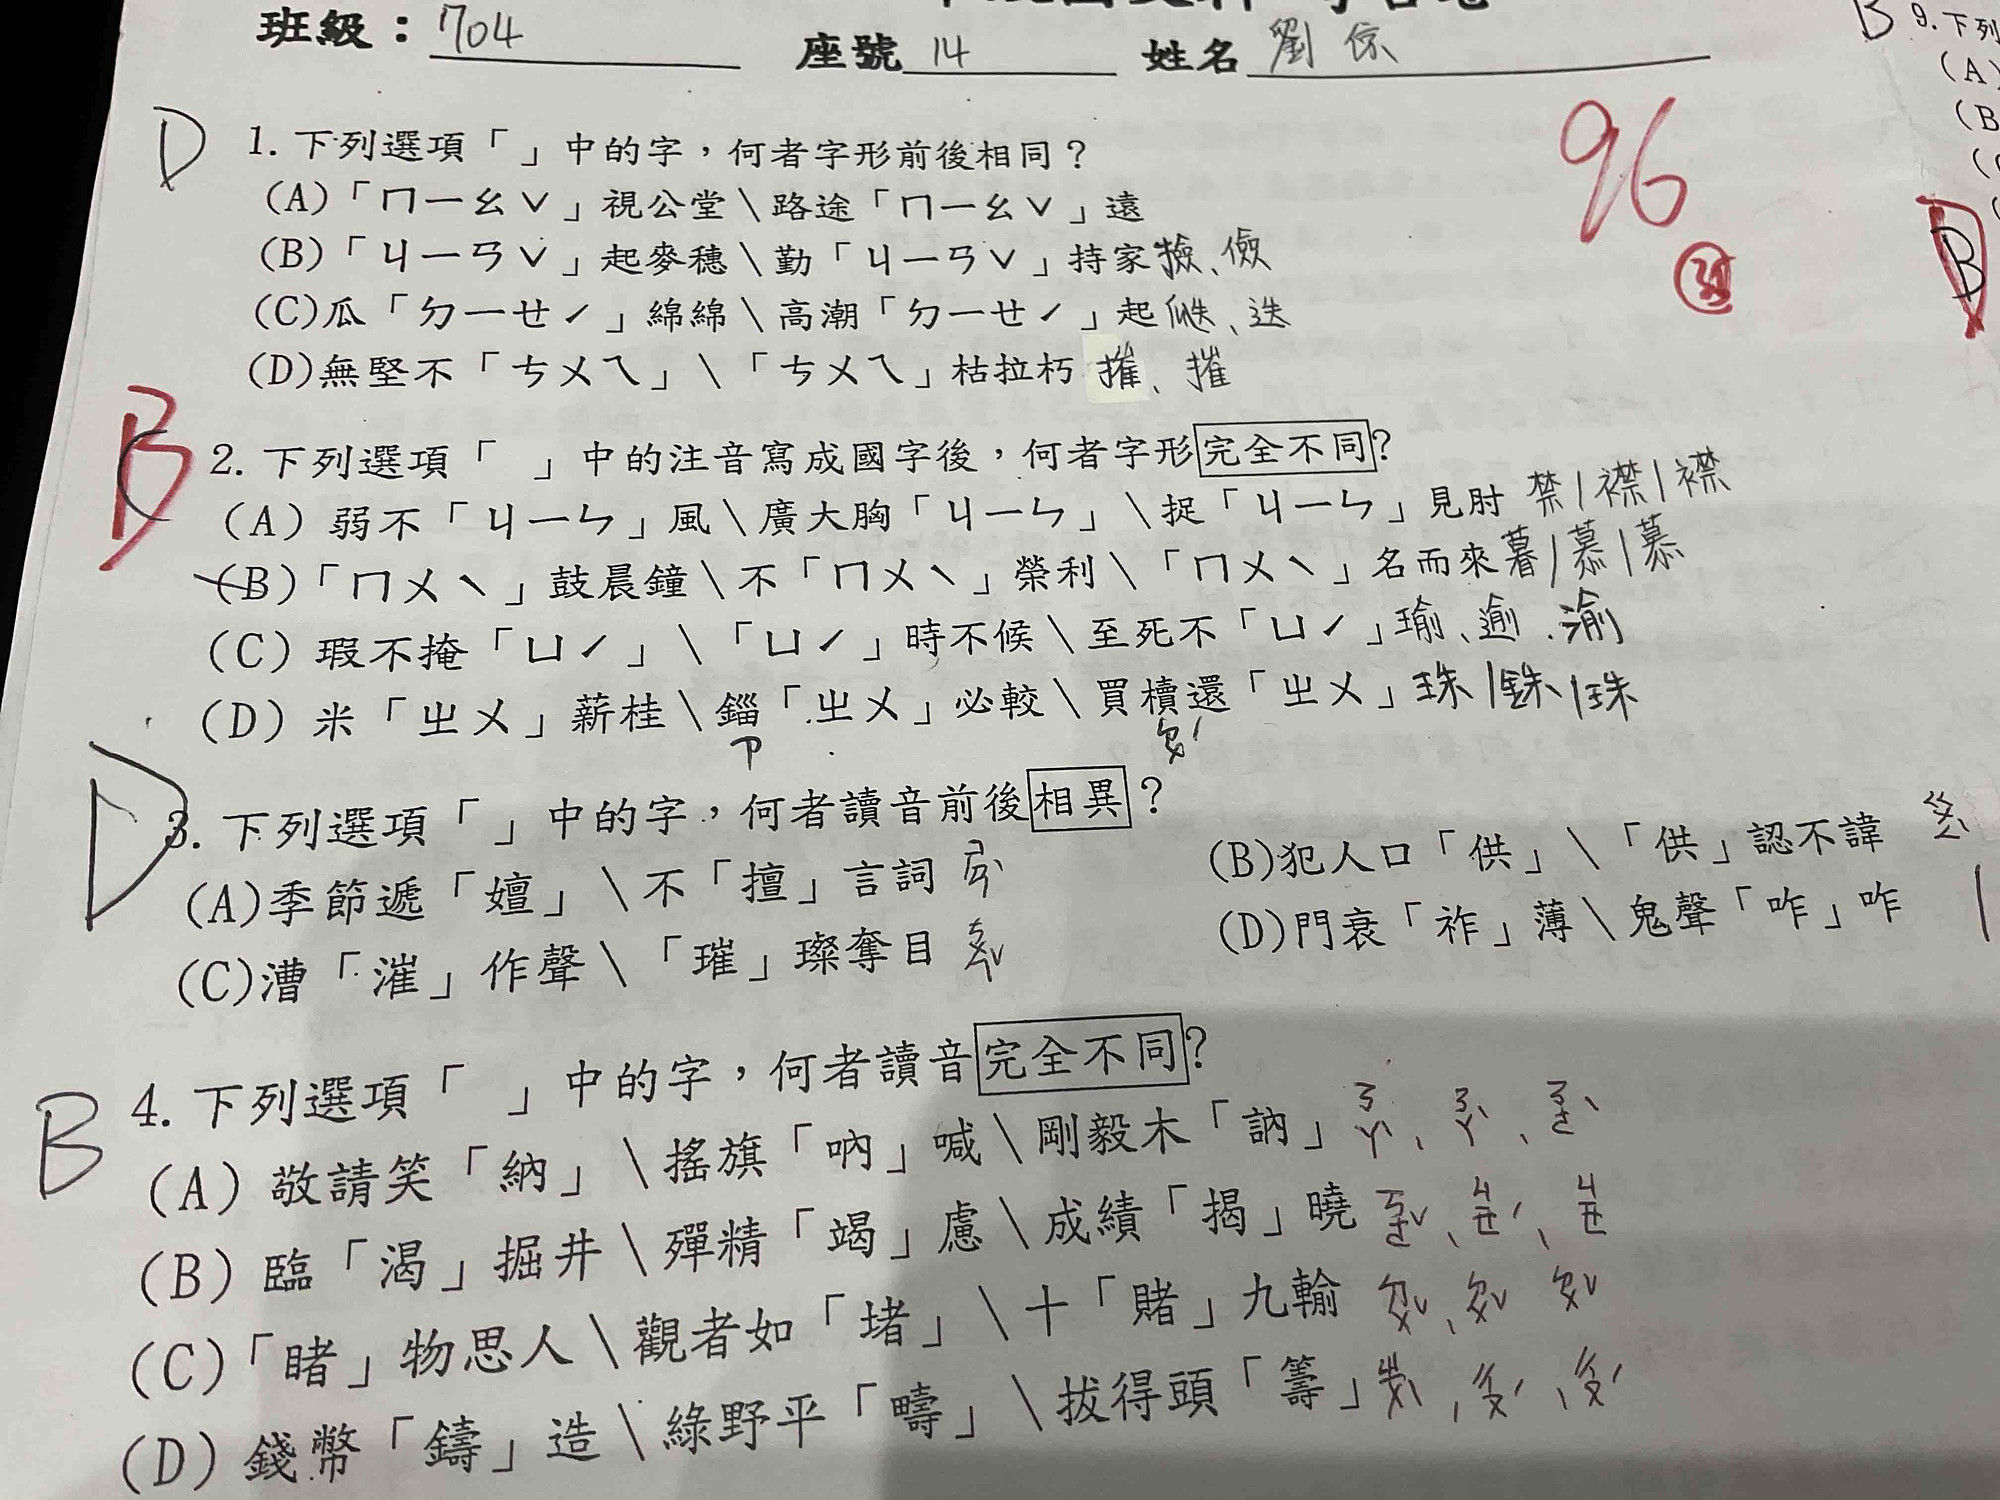 班級：704 座號 14 姓名 劉
96
D 1. 下列選項「 」中的字，何者字形前後相同？
(A)「ㄇㄧㄠˇ」視公堂\路途「ㄇㄧㄠˇ」遠
(B)「ㄐㄧㄢˇ」起麥穗\勤「ㄐㄧㄢˇ」持家 撿、儉
(C)瓜「ㄉㄧㄝˊ」綿綿\高潮「ㄉㄧㄝˊ」起 瓞、迭
(D)無堅不「ㄘㄨㄟ」\「ㄘㄨㄟ」枯拉朽 摧、摧
B 2. 下列選項「 」中的注音寫成國字後，何者字形完全不同？
(A) 弱不「ㄐㄧㄣ」風\廣大胸「ㄐㄧㄣ」\捉「ㄐㄧㄣ」見肘 禁/襟/襟
(B)「ㄇㄨˋ」鼓晨鐘\不「ㄇㄨˋ」榮利\「ㄇㄨˋ」名而來 暮/慕/慕
(C) 瑕不掩「ㄩˊ」\「ㄩˊ」時不候\至死不「ㄩˊ」瑜、逾、渝
(D) 米「ㄓㄨ」薪桂\錙「ㄓㄨ」必較\買櫝還「ㄓㄨ」珠/銖/珠
ㄗ ㄉㄨˊ
D 3. 下列選項「 」中的字，何者讀音前後相異？
(A)季節遞「嬗」\不「擅」言詞 ㄕㄢˋ
(B)犯人口「供」\「供」認不諱 ㄍㄨㄥˋ
(C)漕「漼」作聲\「璀」璨奪目 ㄘㄨㄟˇ
(D)門衰「祚」薄\鬼聲「咋」咋
B 4. 下列選項「 」中的字，何者讀音完全不同？
(A) 敬請笑「納」\搖旗「吶」喊\剛毅木「訥」ㄋㄚˋ、ㄋㄚˋ、ㄋㄜˋ
(B) 臨「渴」掘井\殫精「竭」慮\成績「揭」曉 ㄎㄜˇ、ㄐㄧㄝˊ、ㄐㄧㄝ
(C)「睹」物思人\觀者如「堵」\十「賭」九輸 ㄉㄨˇ、ㄉㄨˇ ㄉㄨˇ
(D) 錢幣「鑄」造\綠野平「疇」\拔得頭「籌」ㄓㄨˋ、ㄔㄡˊ、ㄔㄡˊ
B 9. 下列
(A)
(B
B